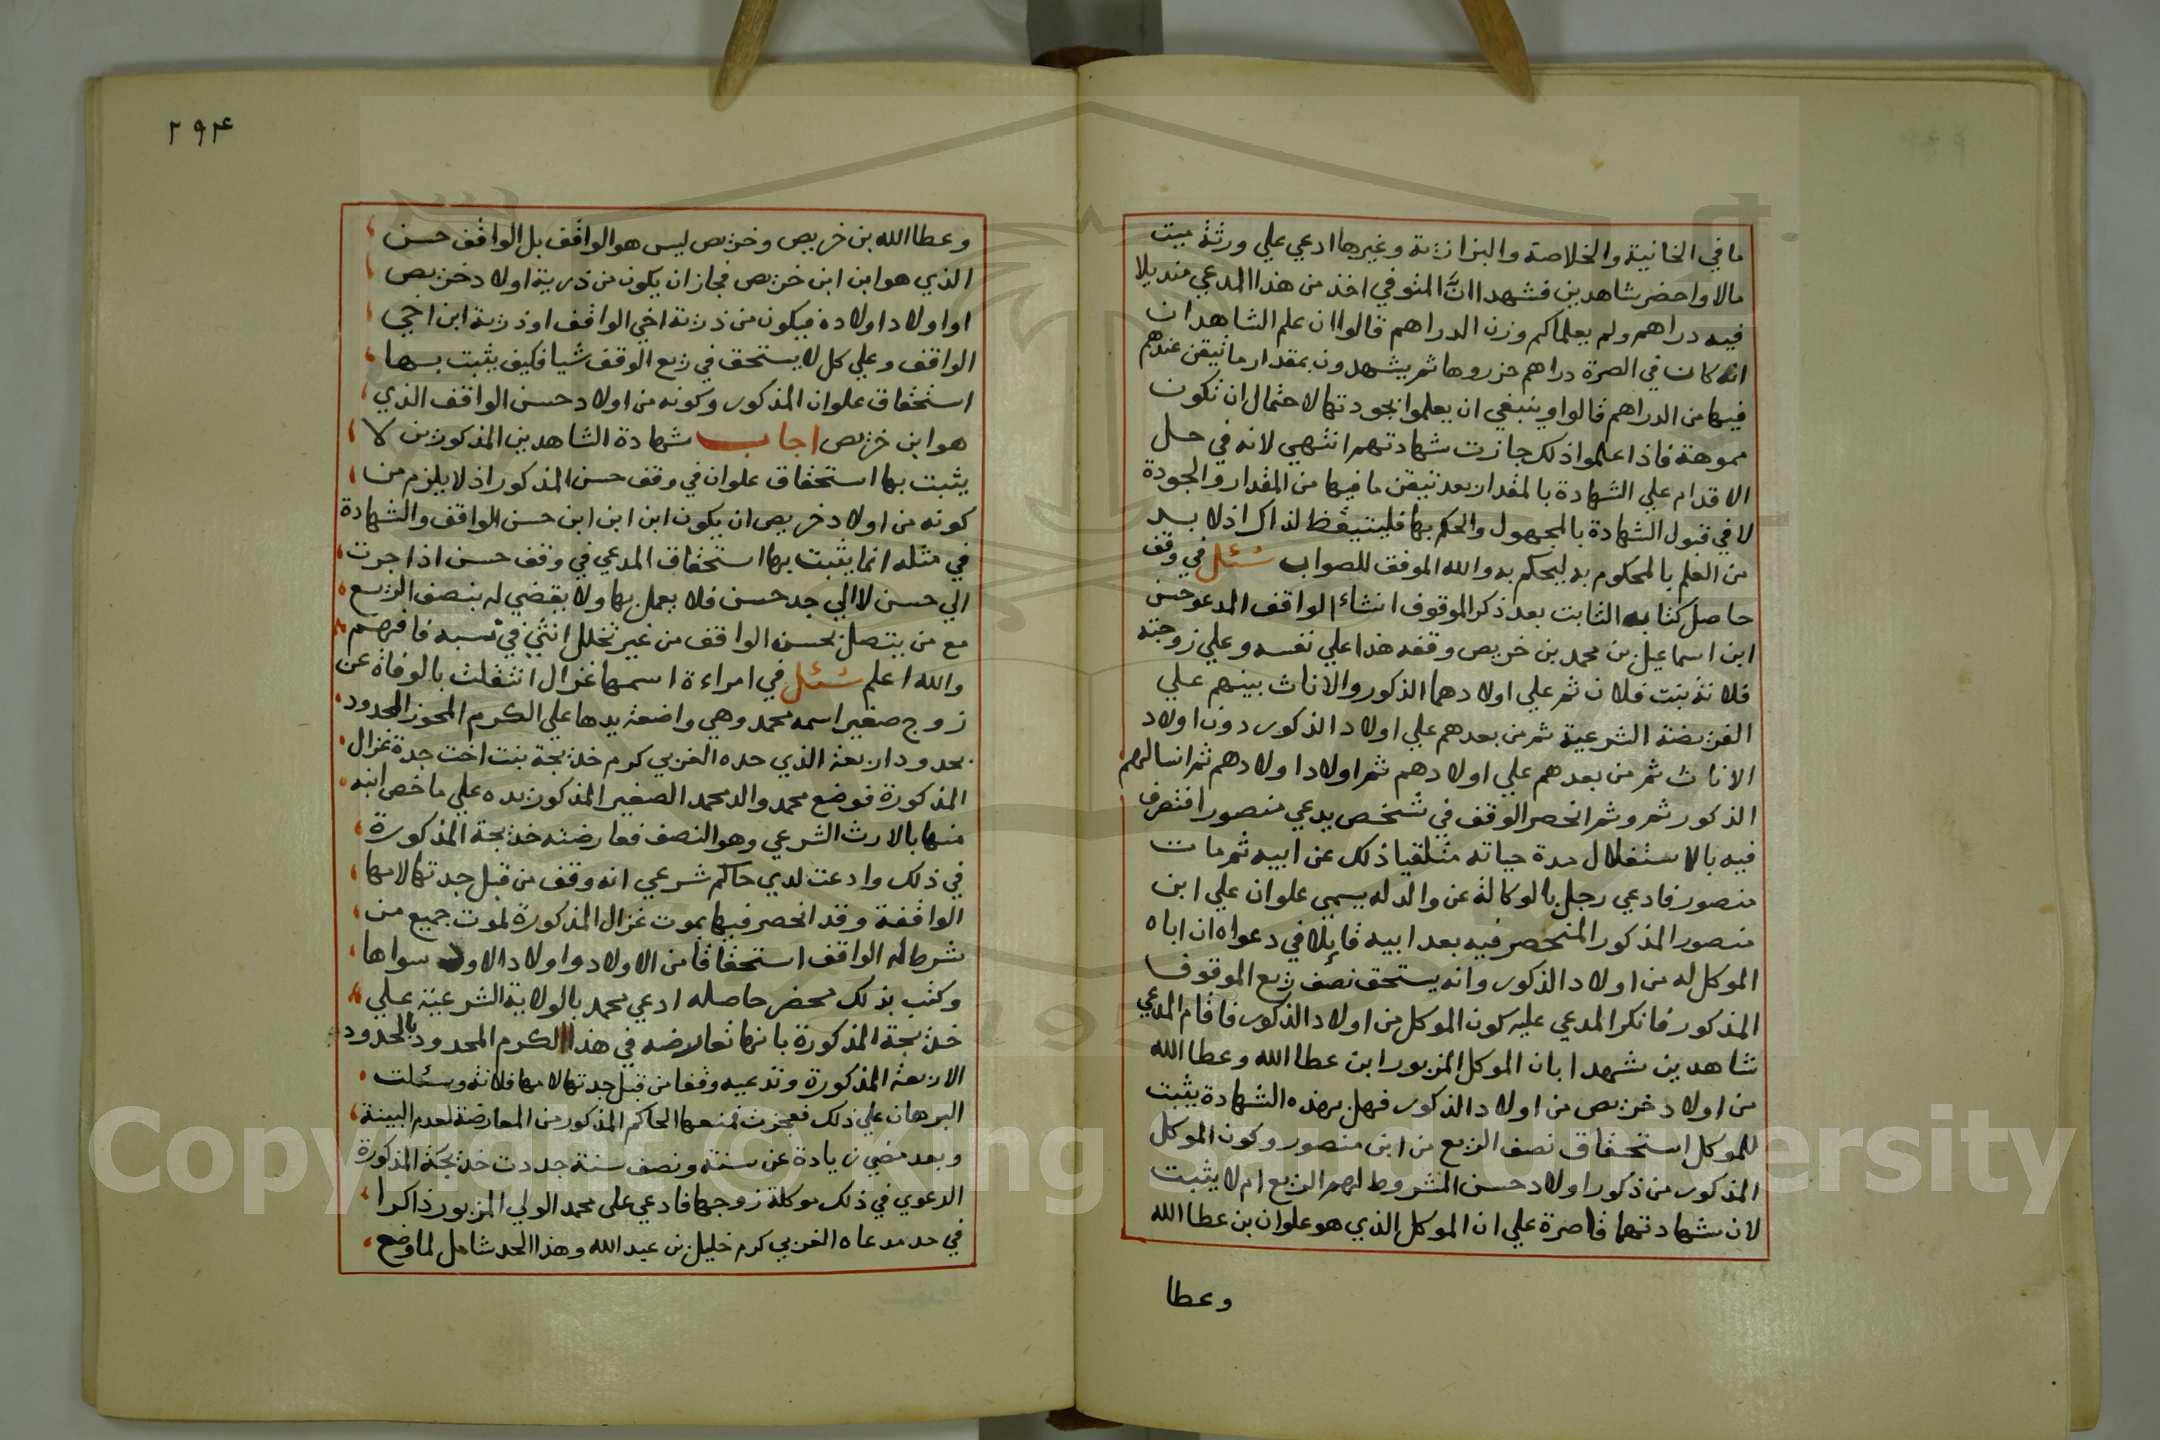 ما في الخانية والخلاصة والبزازية وغيرها ادعي علي ورثة ميت
مالا واحضر شاهدين فشهدا ان المتوفي اخذ من هذا المدعي منديلا
فيه دراهم ولم يعلما كم وزن الدراهم قالوا ان علم الشاهدان
انه كان في الصرة دراهم حزروها ثم يشهدون بمقدار ما تيقن عندهم
فيها من الدراهم قالوا وينبغي ان يعلموا بجودتها لاحتمال ان تكون
مموهة فاذا علموا ذلك جازت شهادتهم انتهي لانه في حل
الاقدام علي الشهادة بالمقدار بعد تيقن ما فيها من المقدار والجودة
لا في قبول الشهادة بالمجهول والحكم بها فليتيقظ لذاك اذ لا بد
من العلم بالمحكوم به ليحكم به والله الموفق للصواب سئل في وقف
حاصل كتابه الثابت بعد ذكر الموقوف انشاء الواقف المدعو حسن
ابن اسماعيل بن محمد بن خريص وقفه هذا علي نفسه وعلي زوجته
فلانة بنت فلان ثم علي اولادهما الذكور والاناث بينهم علي
الفريضة الشرعية ثم من بعدهم علي اولاد الذكور دون اولاد
الاناث ثم من بعدهم علي اولادهم ثم اولاد اولادهم ثم انسالهم
الذكور ثم وثم انحصر الوقف في شخص يدعي منصور افتصرف
فيه بالاستغلال مدة حياته متلقيا ذلك عن ابيه ثم مات
منصور فادعي رجل بالوكالة عن والد له يسمي علوان علي ابن
منصور المذكور المنحصر فيه بعد ابيه قايلا في دعواه ان اباه
الموكل له من اولاد الذكور وانه يستحق نصف ريع الموقوف
المذكور فانكر المدعي عليه كون الموكل من اولاد الذكور فاقام المدعي
شاهدين شهدا بان الموكل المزبور ابن عطا الله وعطا الله
من اولاد خريص من اولاد الذكور فهل بهذه الشهادة يثبت
للموكل استحقاق نصف الريع من ابن منصور وكون الموكل
المذكور من ذكور اولاد حسن المشروط لهم الريع ام لا يثبت
لان شهادتهما قاصرة علي ان الموكل الذي هو علوان بن عطا الله
وعطا
٢٩٤
وعطا الله بن خريص وخريص ليس هو الواقف بل الواقف حسن
الذي هو ابن ابن خريص فجاز ان يكون من ذرية اولاد خريص
او اولاد اولاده فيكون من ذرية اخي الواقف او ذرية ابن اخي
الواقف وعلي كل لا يستحق في ريع الوقف شيا فكيف يثبت بها
استحقاق علوان المذكور وكونه من اولاد حسن الواقف الذي
هو ابن خريص اجاب شهادة الشاهدين المذكورين لا
يثبت بها استحقاق علوان في وقف حسن المذكور اذ لا يلزم من
كونه من اولاد خريص ان يكون ابن ابن ابن حسن الواقف والشهادة
في مثله انما يثبت بها استحقاق المدعي في وقف حسن اذا جرت
الي حسن لا الي جد حسن فلا يعمل بها ولا يقضي له بنصف الريع
مع من يتصل بحسن الواقف من غير تخلل انثي في نسبه فافهم
والله اعلم سئل في امراءة اسمها غزال انتقلت بالوفاة عن
زوج صغير اسمه محمد وهي واضعة يدها علي الكرم المحوز المحدود
بحدود اربعة الذي حده الغربي كرم خديجة بنت اخت جدة غزال
المذكورة فوضع محمد والد محمد الصغير المذكور يده علي ما خص ابنه
منها بالارث الشرعي وهو النصف فعارضته خديجة المذكورة
في ذلك وادعت لدي حاكم شرعي انه وقف من قبل جدتها لامها
الواقفة وقد انحصر فيها بموت غزال المذكورة لموت جميع من
شرط له الواقف استحقاقا من الاولاد واولاد الاولاد سواها
وكتب بذلك محضر حاصله ادعي محمد بالولاية الشرعية علي
خديجة المذكورة بانها تعارضه في هذا الكرم المحدود بالحدود
الاربعة المذكورة وتدعيه وقفا من قبل جدتها لامها فلانة وسئلت
البرهان علي ذلك فعجزت فمنعها الحاكم المذكور من المعارضة لعدم البينة
وبعد مضي زيادة عن سنة ونصف سنة جددت خديجة المذكورة
الدعوي في ذلك موكلة زوجها فادعي علي محمد الولي المزبور ذاكرا
في حد مدعاه الغربي كرم خليل بن عبد الله وهذا الحد شامل لما وضع
Copyright © King Saud University